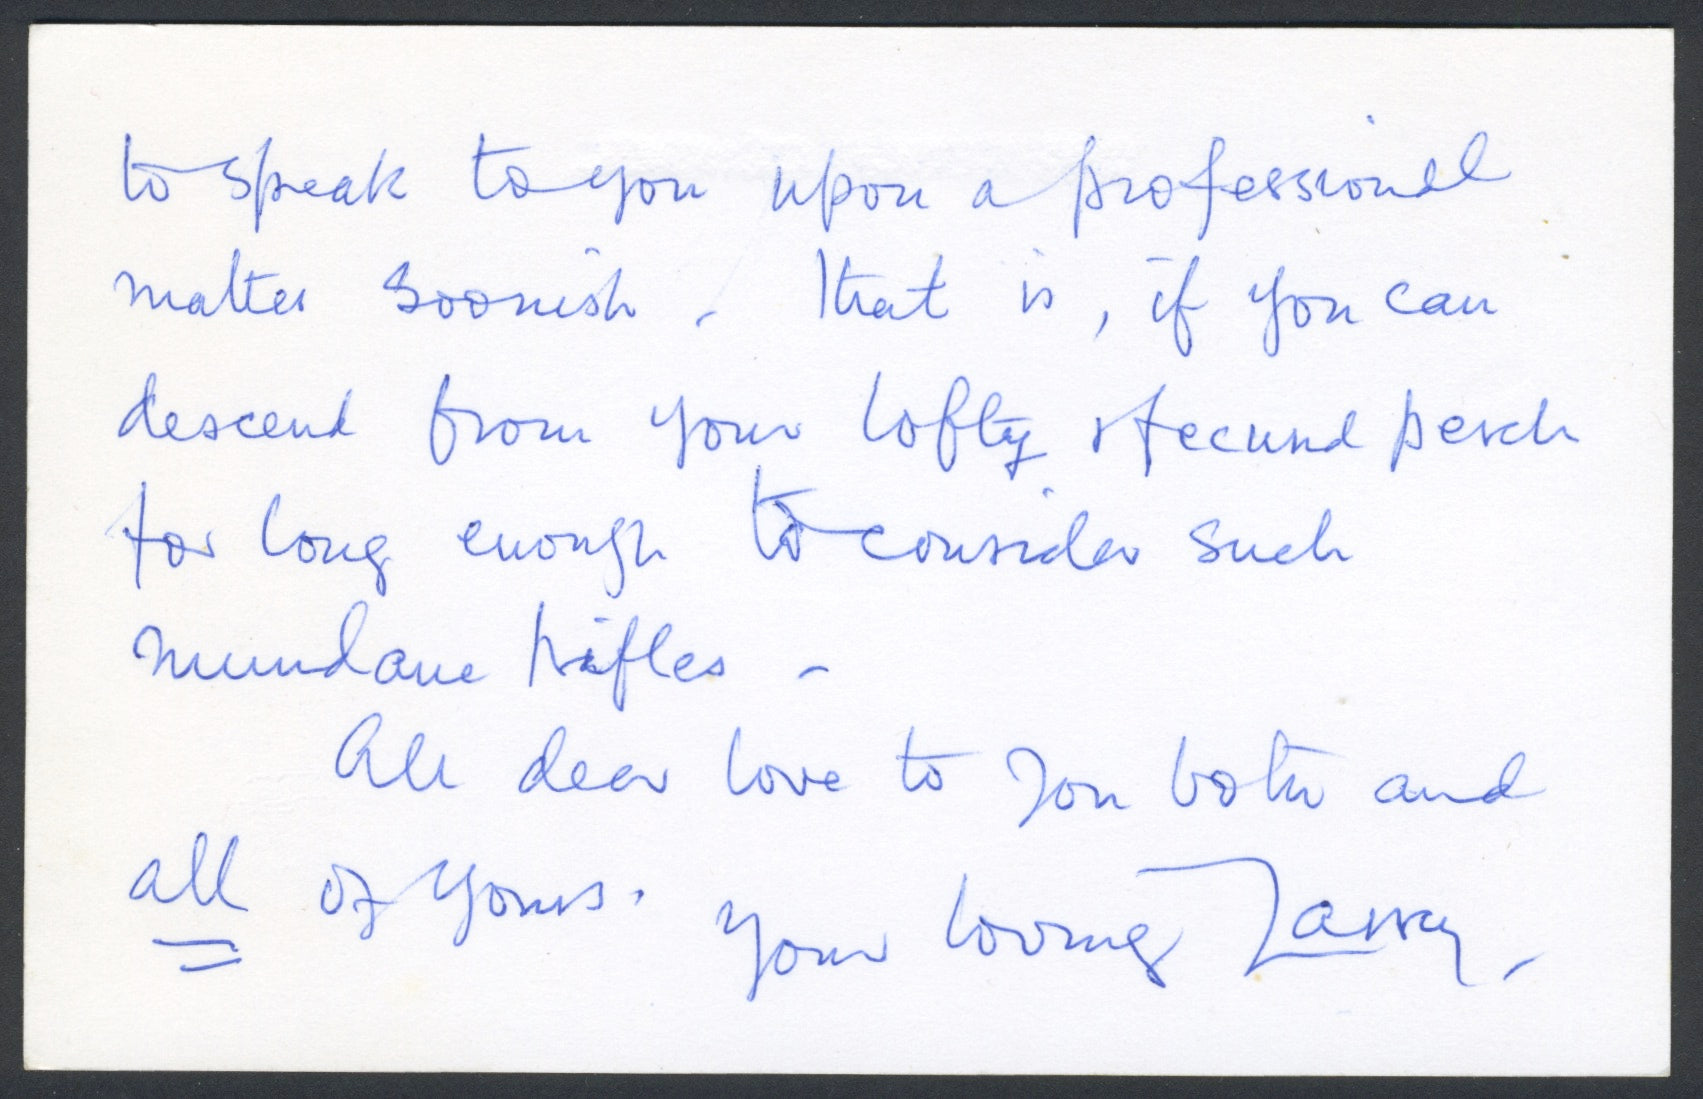 to speak to you upon a professional
matter soonish. That is, if you can
descend from your lofty & fecund perch
for long enough to consider such
mundane trifles -
All dear love to you both and
all of yours. Your loving Larry.